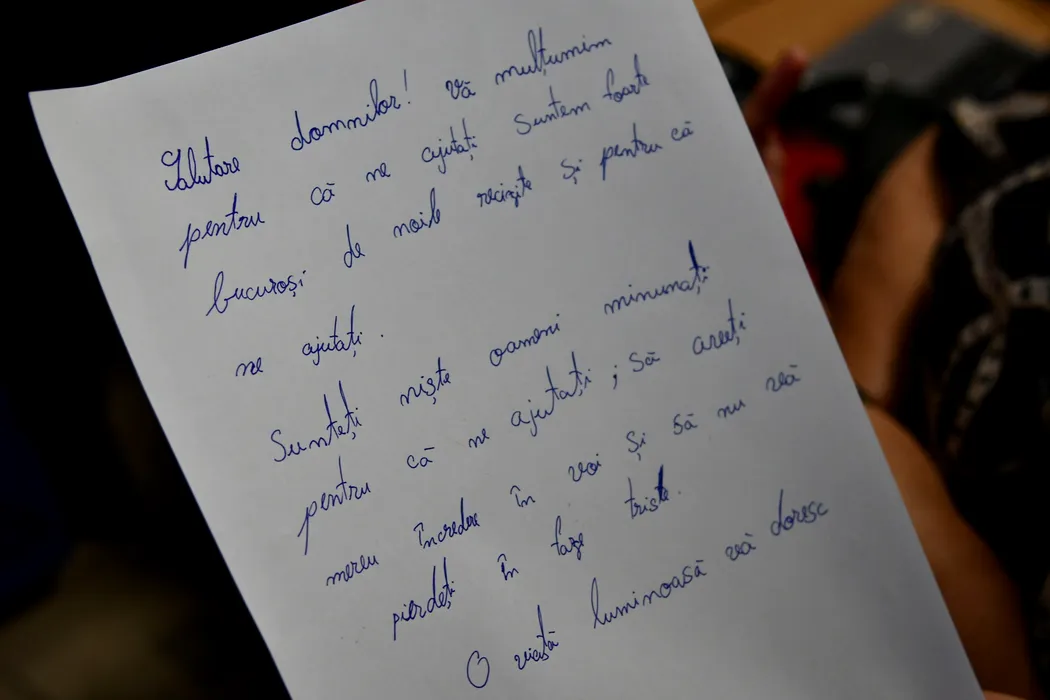 Salutare domnilor! Vă mulțumim
pentru că ne ajutați Suntem foarte
bucuroși de noile recizite și pentru că
ne ajutați.
Sunteți niște oameni minunați
pentru că ne ajutați; să aveți
mereu încredere în voi și să nu vă
pierdeți în faze triste.
O viață luminoasă vă doresc